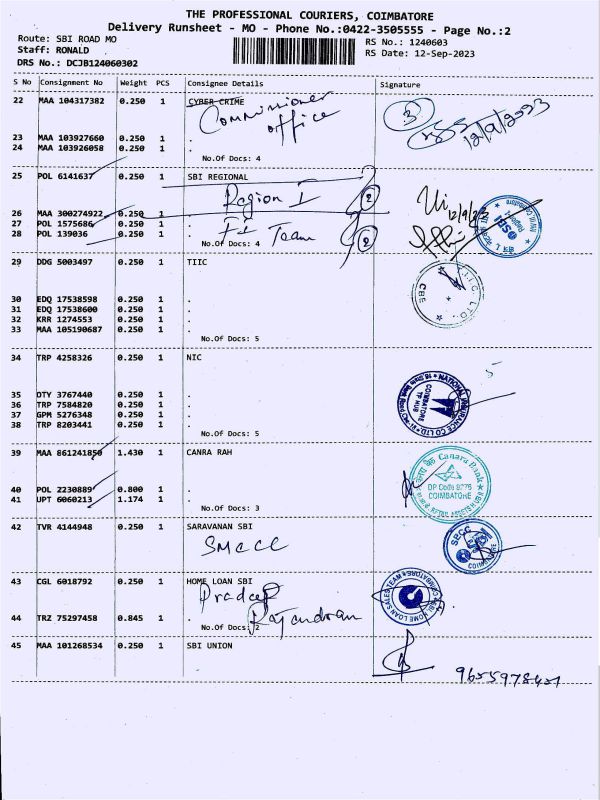 THE PROFESSIONAL COURIERS, COIMBATORE
Delivery Runsheet - MO - Phone No.:0422-3505555 - Page No.:2
Route: SBI ROAD MO
RS No.: 1240603
Staff: RONALD
RS Date: 12-Sep-2023
DRS No.: DCJB124060302
S No Consignment No Weight PCS Consignee Details Signature
22 MAA 104317382 0.250 1 CYBER CRIME
Commissioner
office
3
12/9/2023
23 MAA 103927660 0.250 1 .
24 MAA 103926058 0.250 1 .
No.Of Docs: 4
25 POL 6141637 0.250 1 SBI REGIONAL
Region I
2
12/9/23
26 MAA 300274922 0.250 1 .
27 POL 1575686 0.250 1 .
28 POL 139036 0.250 1 .
Team
2
No.Of Docs: 4
29 DDG 5003497 0.250 1 TIIC
CBE
30 EDQ 17538598 0.250 1 .
31 EDQ 17538600 0.250 1 .
32 KRR 1274553 0.250 1 .
33 MAA 105190687 0.250 1 .
No.Of Docs: 5
34 TRP 4258326 0.250 1 NIC
5
NATIONAL INSURANCE CO LTD
COIMBATORE
TP HUB
35 DTY 3767440 0.250 1 .
36 TRP 7584820 0.250 1 .
37 GPM 5276348 0.250 1 .
38 TRP 8203441 0.250 1 .
No.Of Docs: 5
39 MAA 861241850 1.430 1 CANRA RAH
Canara Bank
DP Code 9276
COIMBATORE
40 POL 2230889 0.800 1 .
41 UPT 6060213 1.174 1 .
No.Of Docs: 3
42 TVR 4144948 0.250 1 SARAVANAN SBI
SMECC
43 CGL 6018792 0.250 1 HOME LOAN SBI
Pradeep
HOME LOAN SALES TEAM
44 TRZ 75297458 0.845 1 .
Rajendran
No.Of Docs: 2
45 MAA 101268534 0.250 1 SBI UNION